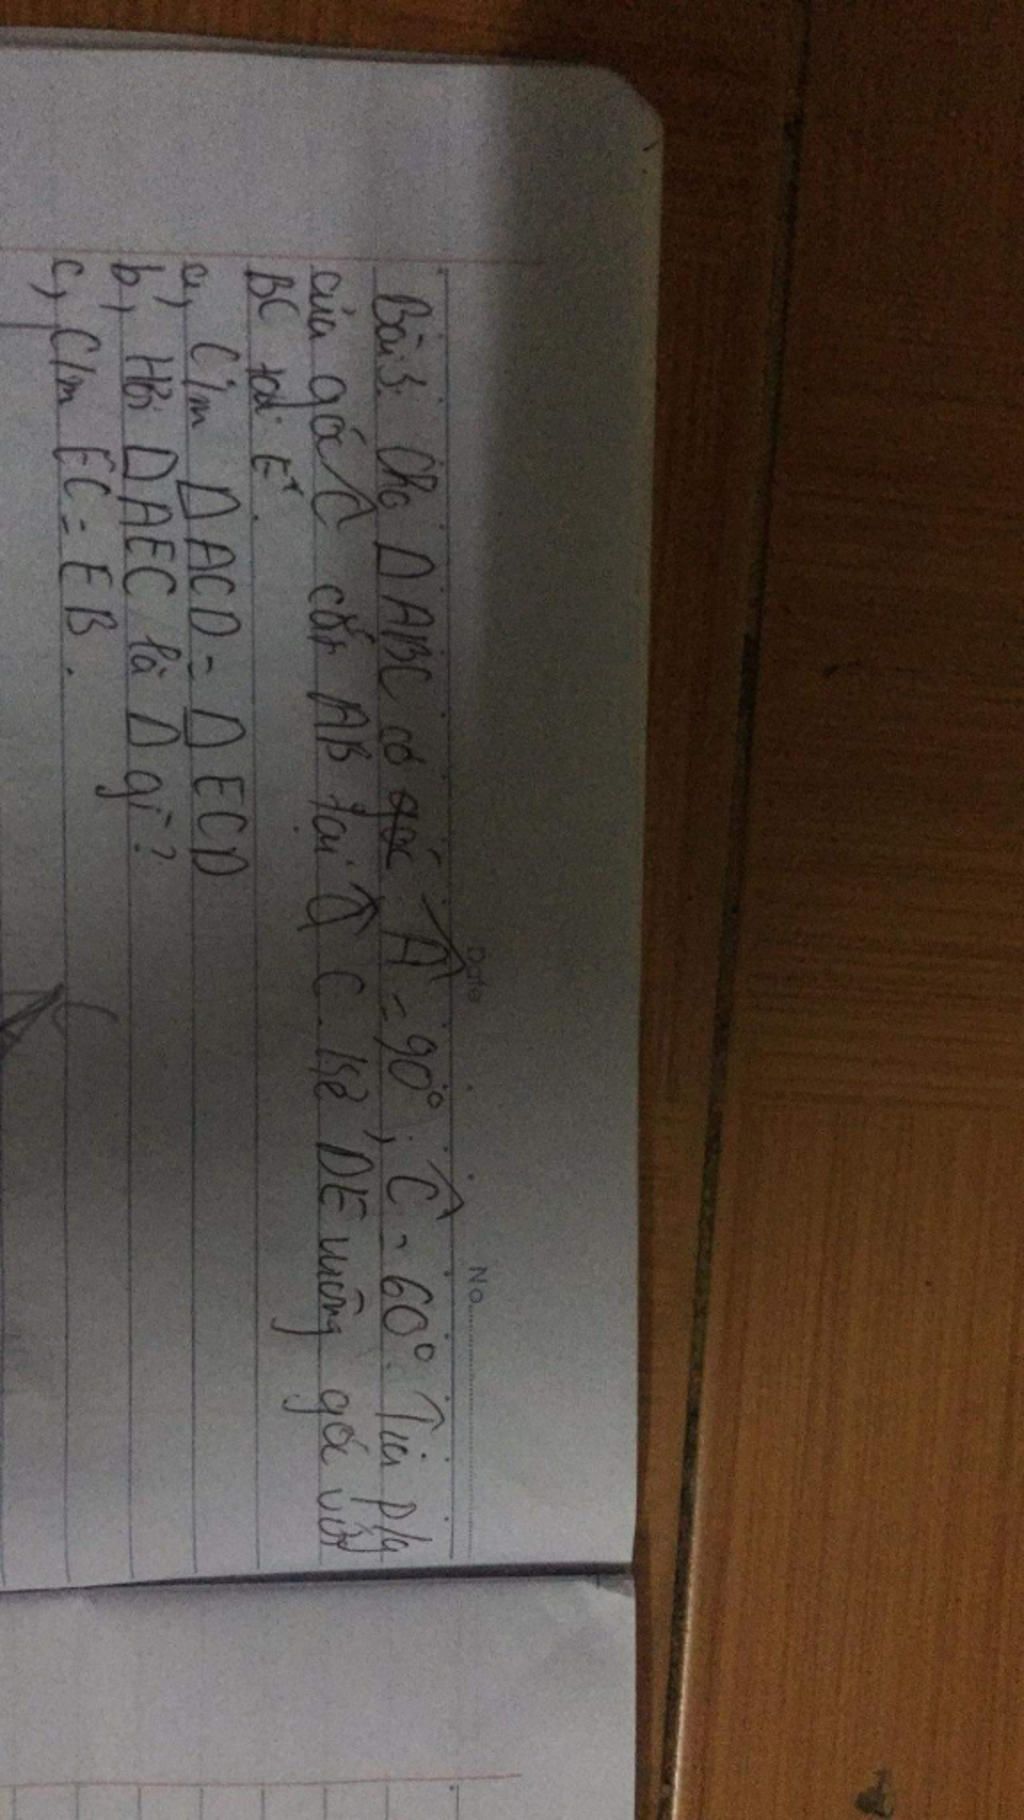 Date No
Bài 3: Cho Δ ABC có góc Â = 90°, Ĉ = 60°. Tia p/g
của góc Ĉ cắt AB tại C. Kẻ DE vuông góc với
BC tại E.
a, C/m Δ ACD = Δ ECD
b, Hỏi Δ AEC là Δ gì?
c, C/m EC = EB.
C